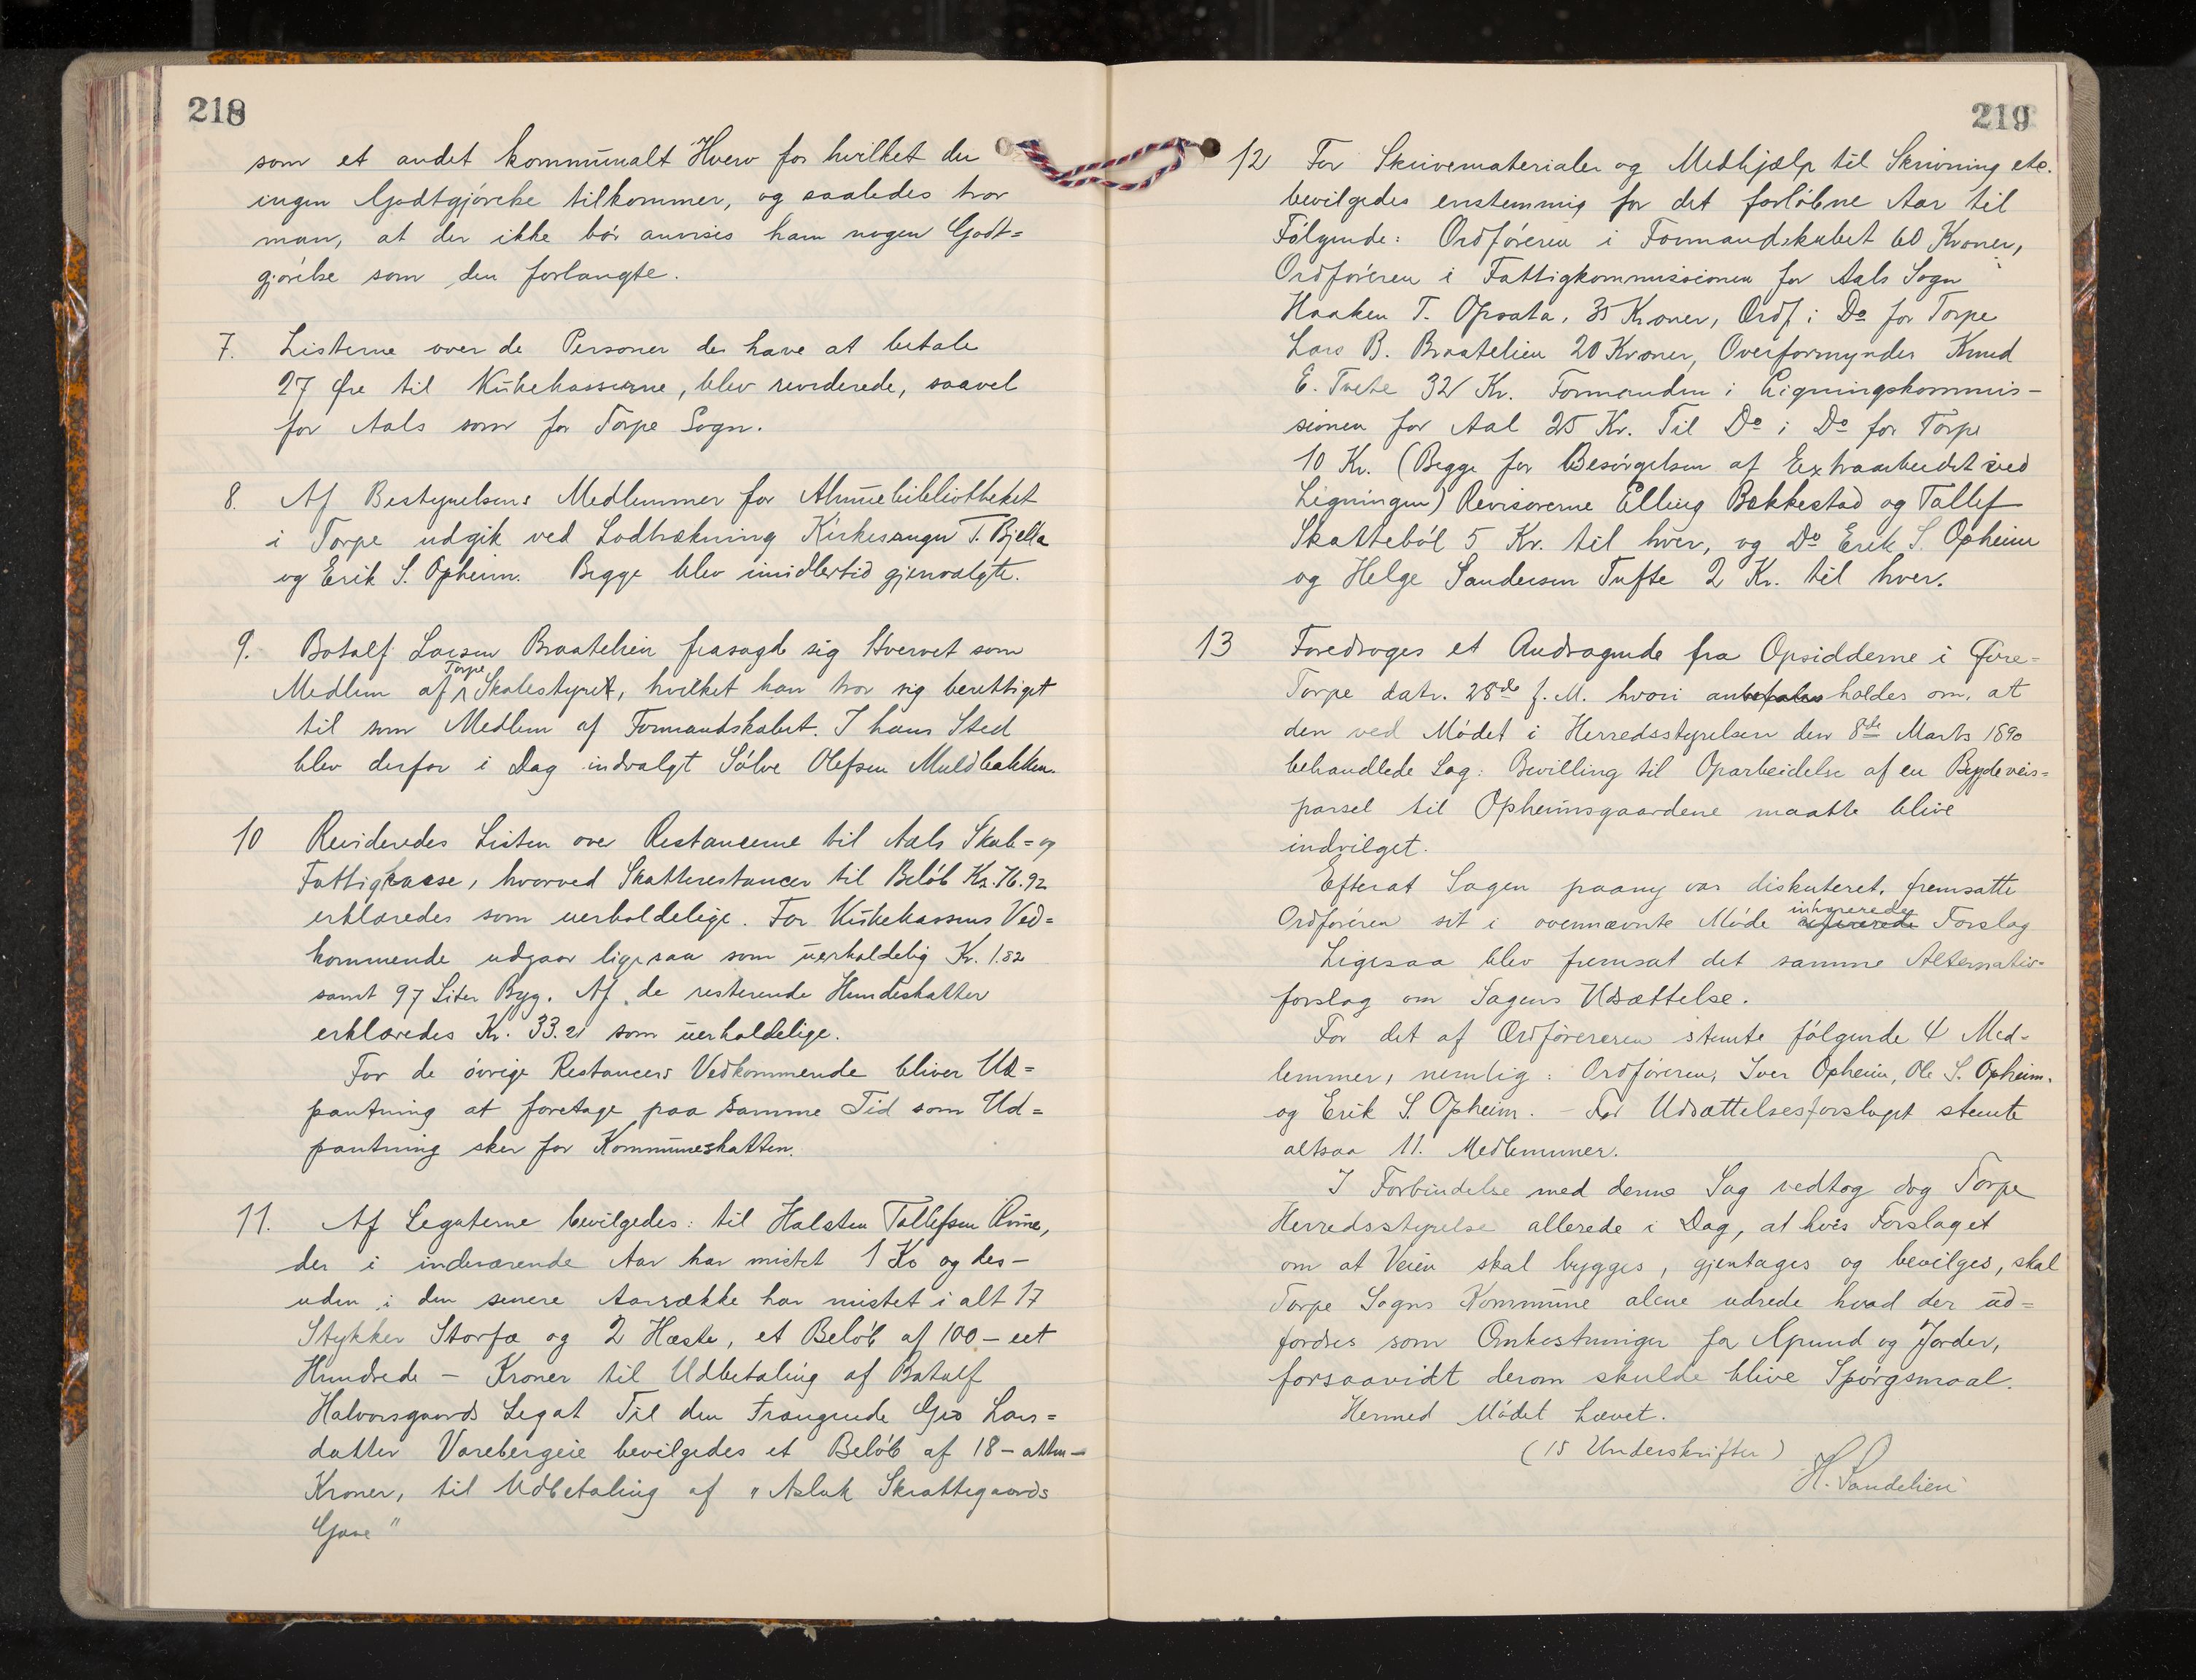 218
som et andet kommunalt Hverv for hvilket der
ingen Godtgjörelse tilkommer, og saaledes tror
man, at der ikke bör anvises ham nogen Godt=
gjörelse som den forlangte.
7. Listerne over de Personer der have at betale
27 Øre til Kirkekasserne, blev reviderede, saavel
for Aals som for Torpe Sogn.
8. Af Bestyrelsens Medlemmer for Almuebibliotheket
i Torpe udgik ved Lodtrækning Kirkesanger T. Bjella
og Erik S. Opheim. Begge blev imidlertid gjenvalgte.
9. Botolf Larsen Braatelien frasagde sig Hvervet som
Medlem af Torpe Skolestyret, hvilket han tror sig berettiget
til som Medlem af Formandskabet. I hans Sted
blev derfor i Dag indvalgt Sölve Olefsen Muldbakken.
10 Revideredes Listen over Restancerne til Aals Skole= og
Fattigkasse, hvorved Skatterestancer til Belöb Kr. 76.92
erklæredes som uerholdelige. For Kirkekassens Ved=
kommende udgaar ligesaa som uerholdelig Kr. 1.82
samt 97 Liter Byg. Af de resterende Hundeskatter
erklæredes Kr. 33.21 som uerholdelige.
For de övrige Restancers Vedkommende bliver Ud=
pantning at foretage paa samme Tid som Ud=
pantning sker for Kommuneskatten.
11. Af Legaterne bevilgedes: til Halsten Tollefsen
der i indeværende Aar har mistet 1 Ko og des-
uden i den senere Aarrække har mistet i alt 17
Stykker Storfæ og 2 Heste, et Belöb af 100 - eet
Hundrede - Kroner til Udbetaling af Botolf
Halvorsgaards Legat Til den trængende Gro Lars=
datter Varebergeie bevilgedes et Belöb af 18 - atten -
Kroner, til Udbetaling af "Aslak Skrattegaards
Gave"
219
12 For Skrivematerialer og Medhjælp til Skrivning etc.
bevilgedes enstemmig for det forlöbne Aar til
Fölgende: Ordföreren i Formandskabet 60 Kroner,
Ordföreren i Fattigkommissionen for Aals Sogn
Haaken T. Opsata, 35 Kroner, Ordf i Do for Torpe
Lars B. Braatelien 20 Kroner, Overformynder Knud
E. Tveto 32 Kr. Formanden i Ligningskommis-
sionen for Aal 25 Kr. Til Do i Do for Torpe
10 Kr. (Begge for Besörgelsen af Extraarbeidet ved
Ligningen) Revisorerne Elling Bekkestad og Tollef
Skatteböl 5 Kr. til hver, og Do Erik S. Opheim
og Helge Sandersen Tufte 2 Kr. til hver.
13 Foredroges et Andragende fra Opsidderne i Øvre=
Torpe datr. 28de f. M. hvori anbefales holdes om, at
den ved Mödet i Herredsstyrelsen den 8de Marts 1890
behandlede Sag: Bevilling til Oparbeidelse af en Bygdeveis=
parsel til Opheimsgaardene maatte blive
indvilget.
Efterat Sagen paany var diskuteret, fremsatte
Ordföreren sit i ovennævnte Möde refererede inhærerede Forslag
Ligesaa blev fremsat det samme Alternativ-
forslag om Sagens Udsættelse.
For det af Ordföreren stemte fölgende 4 Med-
lemmer, nemlig: Ordföreren, Iver Opheim, Ole S. Opheim.
og Erik S. Opheim. - For Udsættelsesforslaget stemte
altsaa 11. Medlemmer.
I Forbindelse med denne Sag vedtog dog Torpe
Herredsstyrelse allerede i Dag, at hvis Forslaget
om at Veien skal bygges, gjentages og bevilges, skal
Torpe Sogns Kommune alene udrede hvad der ud=
fordres som Omkostninger for Grund og Jorder,
forsaavidt derom skulde blive Spörgsmaal.
Hermed Mödet hævet.
(15 Underskrifter)
H. Sandelien